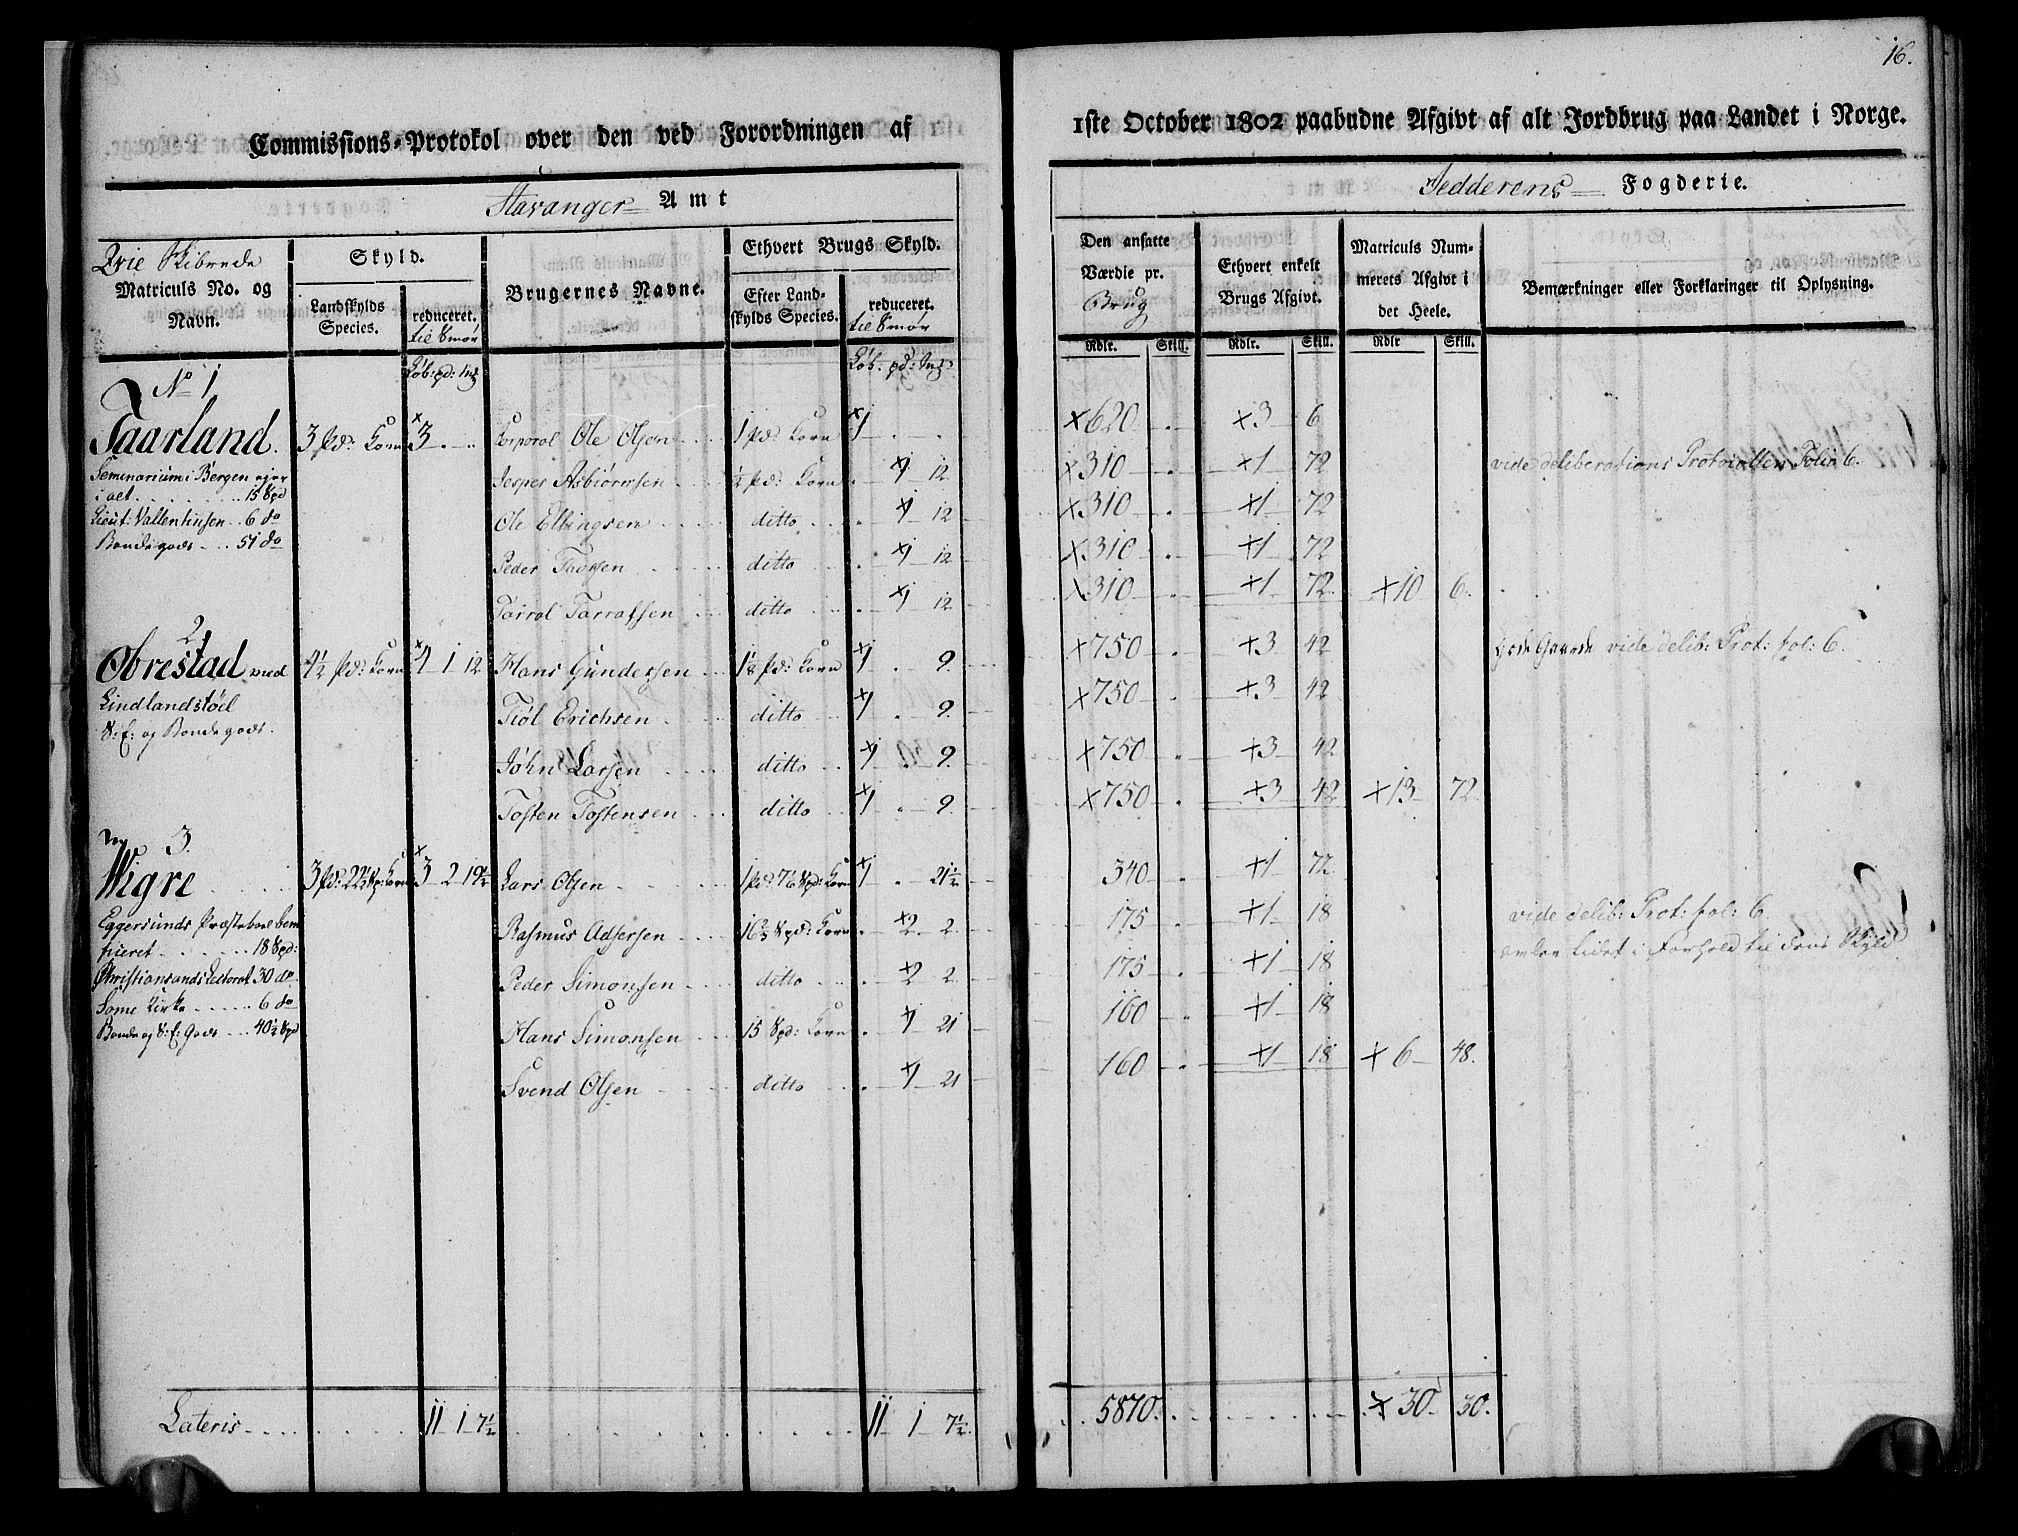 16.
Commissions-Protokol over den ved Forordningen af 1ste October 1802 paabudne Afgivt af alt Jordbrug paa Landet i Norge.
Stavanger Amt
Jedderens Fogderie.
Qvie Skibrede
Matriculs No. og Navn.
Skyld.
Landskylds Species.
reduceret. til Smør
Brugernes Navne.
Ethvert Brugs Skyld.
Efter Landskylds Species.
reduceret. til Smør
Den ansatte Værdie pr. Brug
Ethvert enkelt Brugs Afgivt.
Matriculs Nummerets Afgivt i det Heele.
Bemærkninger eller Forklaringer til Oplysning.
Løb: pd: mk Løb: pd: mk Rdlr. Skill. Rdlr. Skill. Rdlr Skill.
No 1
Taarland. 3 pd: Korn 3 . .. Corporal Ole Olsen 1 pd: Korn 1 . . 620 . 3 6
Seminarium i Bergen ejer Jesper Asbiørnsen ½ pd: Korn . 1 12 310 . 1 72 vide deliberations Protocollen Folio 6.
i alt 15 Spd
Lieut: Vallentinsen 6 do Ole Ellingsen ditto . 1 12 310 . 1 72
Bondegods 51 do Peder Thorsen ditto . 1 12 310 . 1 72
Tarral Tarralsen ditto . 1 12 310 . 1 72 10 6.
2.
Obrestad med 4½ pd: Korn 4 1 12 Hans Gundersen 1⅛ pd: Korn 1 . 9. 750 . 3 42 gode Gaarde vide delib: Prot: fol: 6.
Lindlandstøel Tiøl Erichsen ditto 1 . 9. 750 . 3 42
S: E: og Bondegods. John Larsen ditto 1 . 9. 750 . 3 42
Tosten Tostensen ditto 1 . 9. 750 . 3 42 13 72
3.
Wigre 3 pd: 22½ Spd: Korn 3 2 19½ Lars Olsen 1 pd: 7⅙ Spd: Korn 1 . 21½ 340 . 1 72
Eggersunds Præstebord bem Rasmus Adsersen 16⅔ Spd: Korn . 2 2 175 . 1 18 vide delib: Prot: fol: 6.
ficeret 18 Spd: avler lidet i Forhold til dens Skyld
Christiansands Lectorat 30 do Peder Simonsen ditto . 2 2 175 . 1 18
Some Kirke 6 do
Bonde og S: E: Gods 40½ Spd Hans Simonsen 15 Spd: Korn . 1 21 160 . 1 18
Svend Olsen ditto . 1 21 160 . 1 18 6 48.
Lateris 11 1 7½ 11 1 7½ 5870. 30 30.